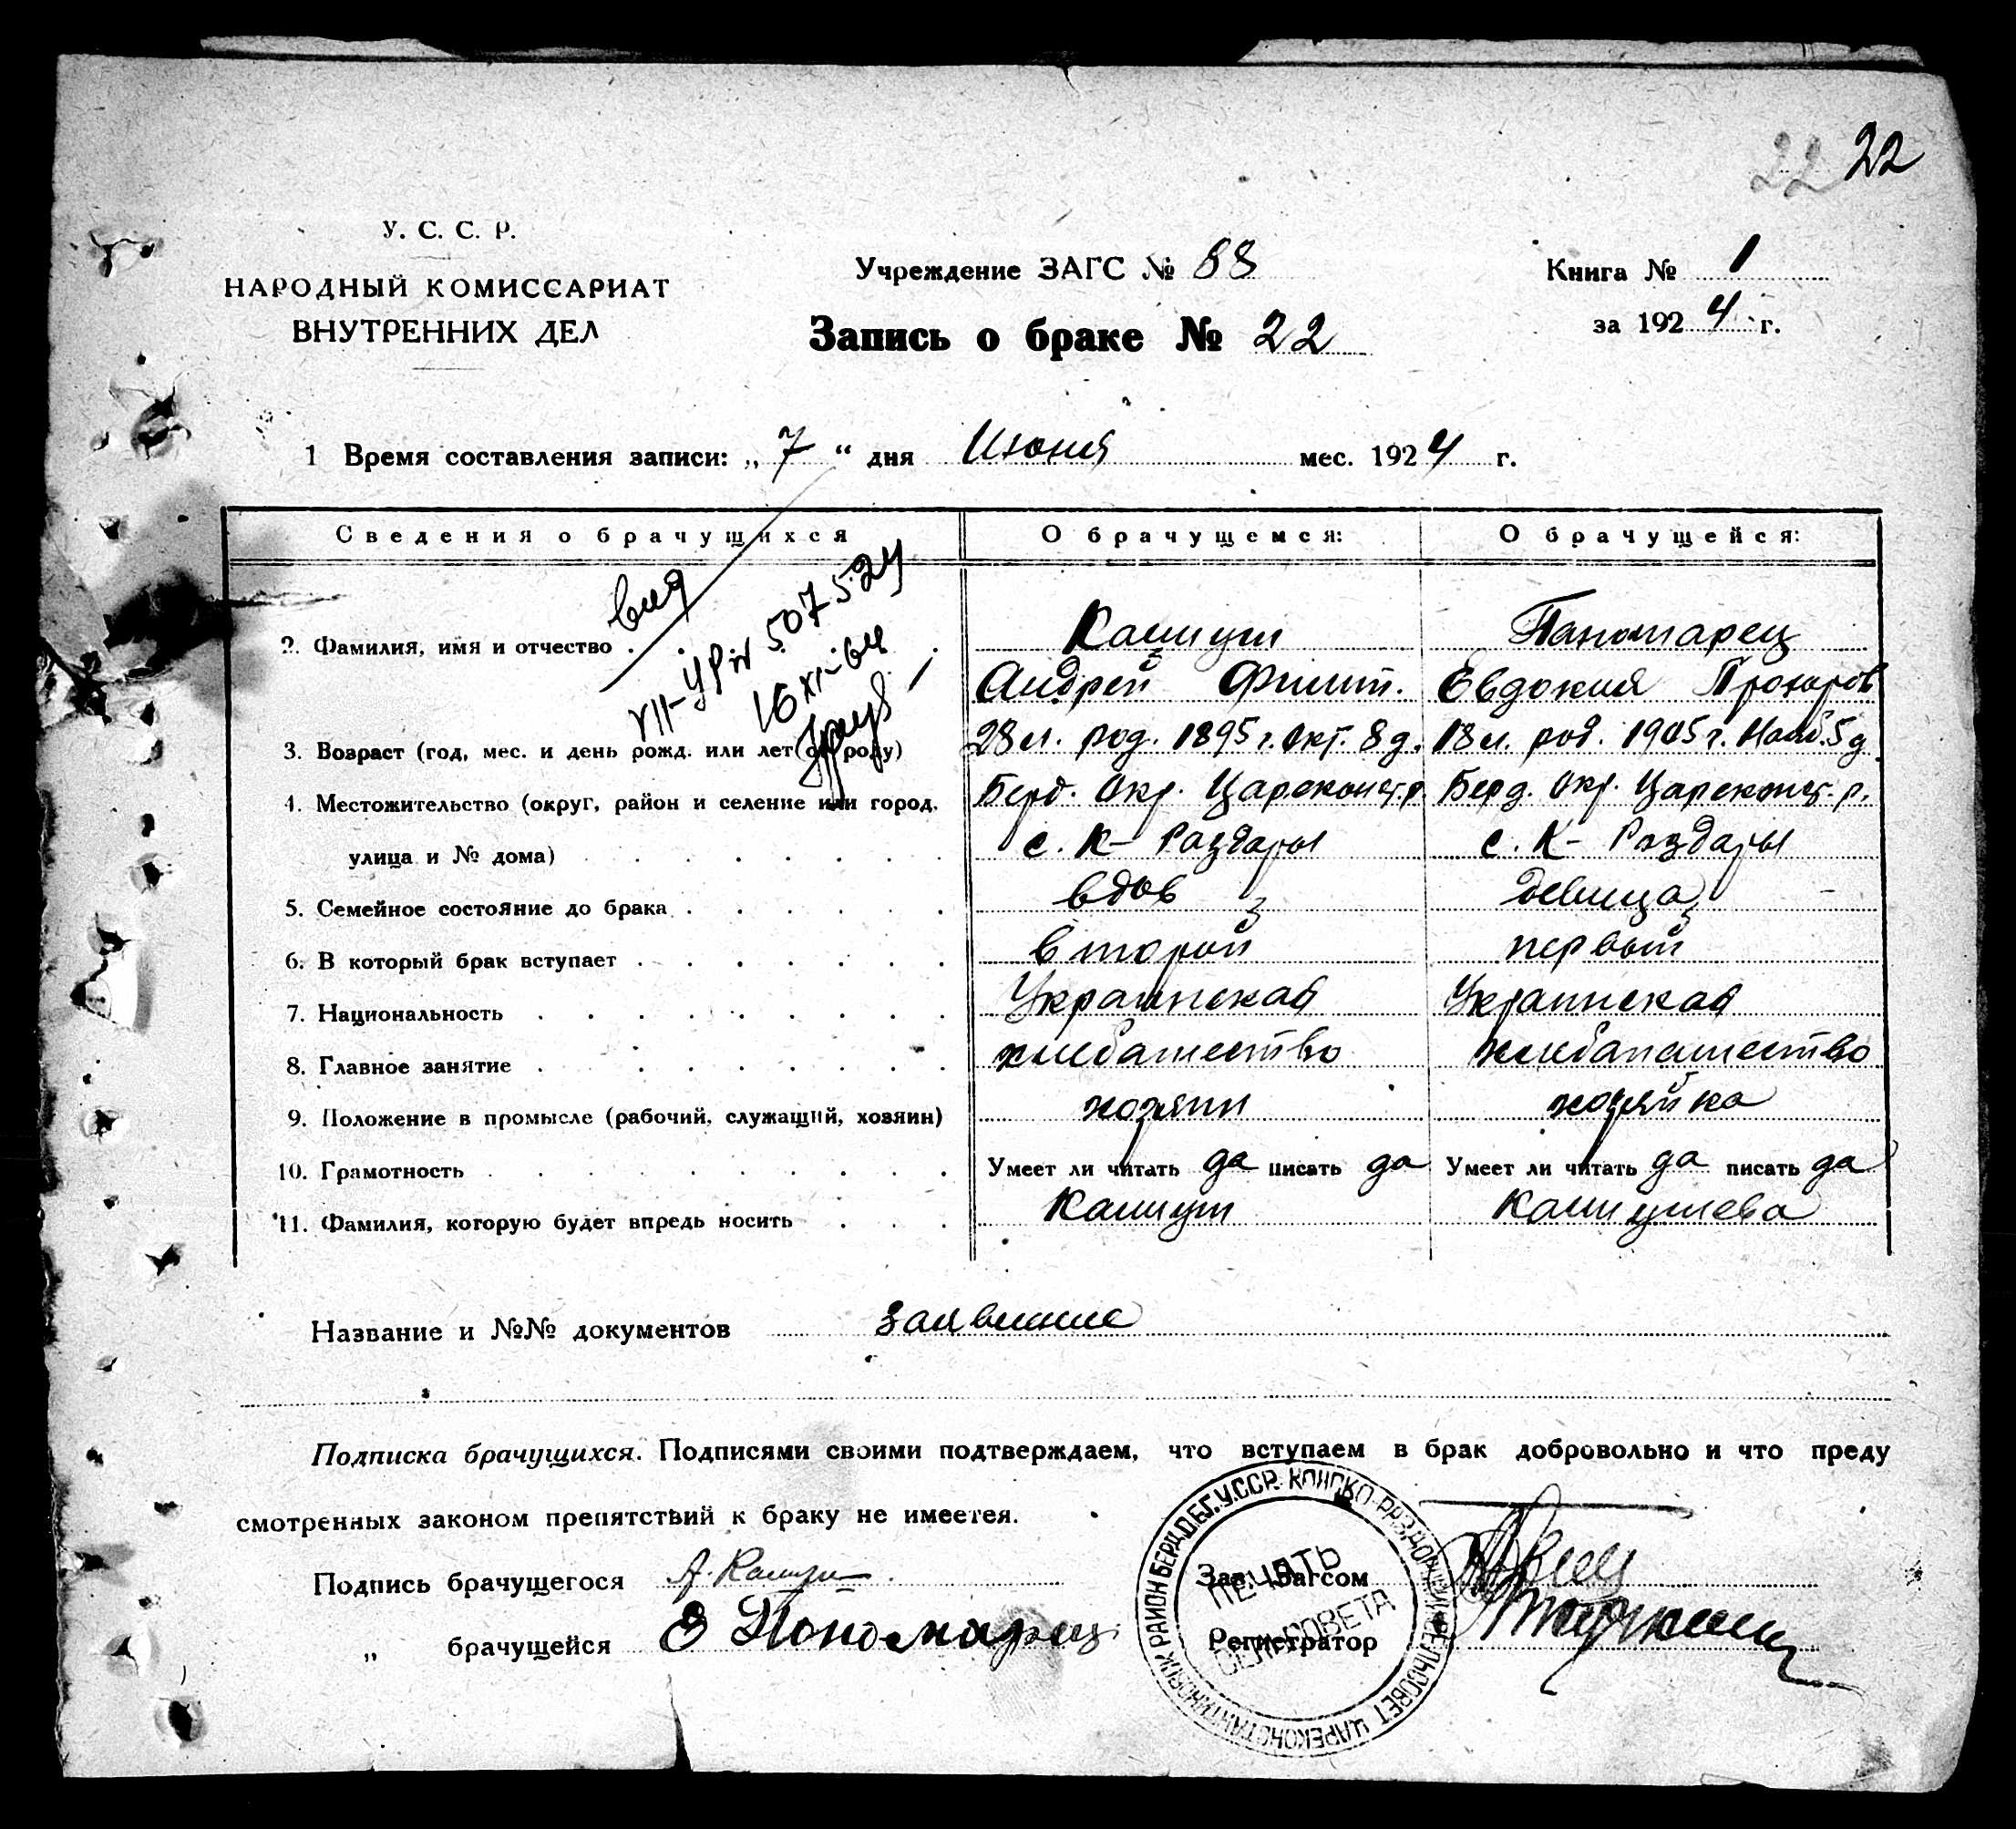 22 22
У. С. С. Р.
НАРОДНЫЙ КОМИССАРИАТ
ВНУТРЕННИХ ДЕЛ
Учреждение ЗАГС № 88
Запись о браке № 22
Книга № 1
за 1924 г.
1 Время составления записи: „7“ дня Июня мес. 1924 г.
Сведения о брачущихся О брачущемся: О брачущейся:
2. Фамилия, имя и отчество Кашут Паномарец
Андрей Филип. Евдокия Прохоров
507524
16 XI-64
3. Возраст (год, мес. и день рожд. или лет от роду) 28 л. род. 1895 г. Окт. 8 д. 18 л. род. 1905 г. Нояб. 5 д
4. Местожительство (округ, район и селение или город, Берд. Окр. Цареконст. р. Берд. Окр. Цареконст. р.
улица и № дома) с. К- Раздоры с. К- Раздоры
5. Семейное состояние до брака вдов девица
6. В который брак вступает второй первый
7. Национальность Украинская Украинская
8. Главное занятие хлебашество хлебапашество
9. Положение в промысле (рабочий, служащий, хозяин) хозяин хозяйка
10. Грамотность Умеет ли читать да писать да Умеет ли читать да писать да
11. Фамилия, которую будет впредь носить Кашут Кашутева
Название и №№ документов Заявление
Подписка брачущихся. Подписями своими подтверждаем, что вступаем в брак добровольно и что преду
смотренных законом препятствий к браку не имеетея.
Подпись брачущегося А. Кашут Зав. Загсом
„ брачущейся Е Пономарец Регистратор
КОНСКО-РАЗДОРСКИЙ СЕЛЬСОВЕТ ЦАРЕКОНСТАНТИНОВСК РАЙОН БЕРД.ОБГ.У.ССР.
ПЕЧАТЬ
СЕЛЬСОВЕТА